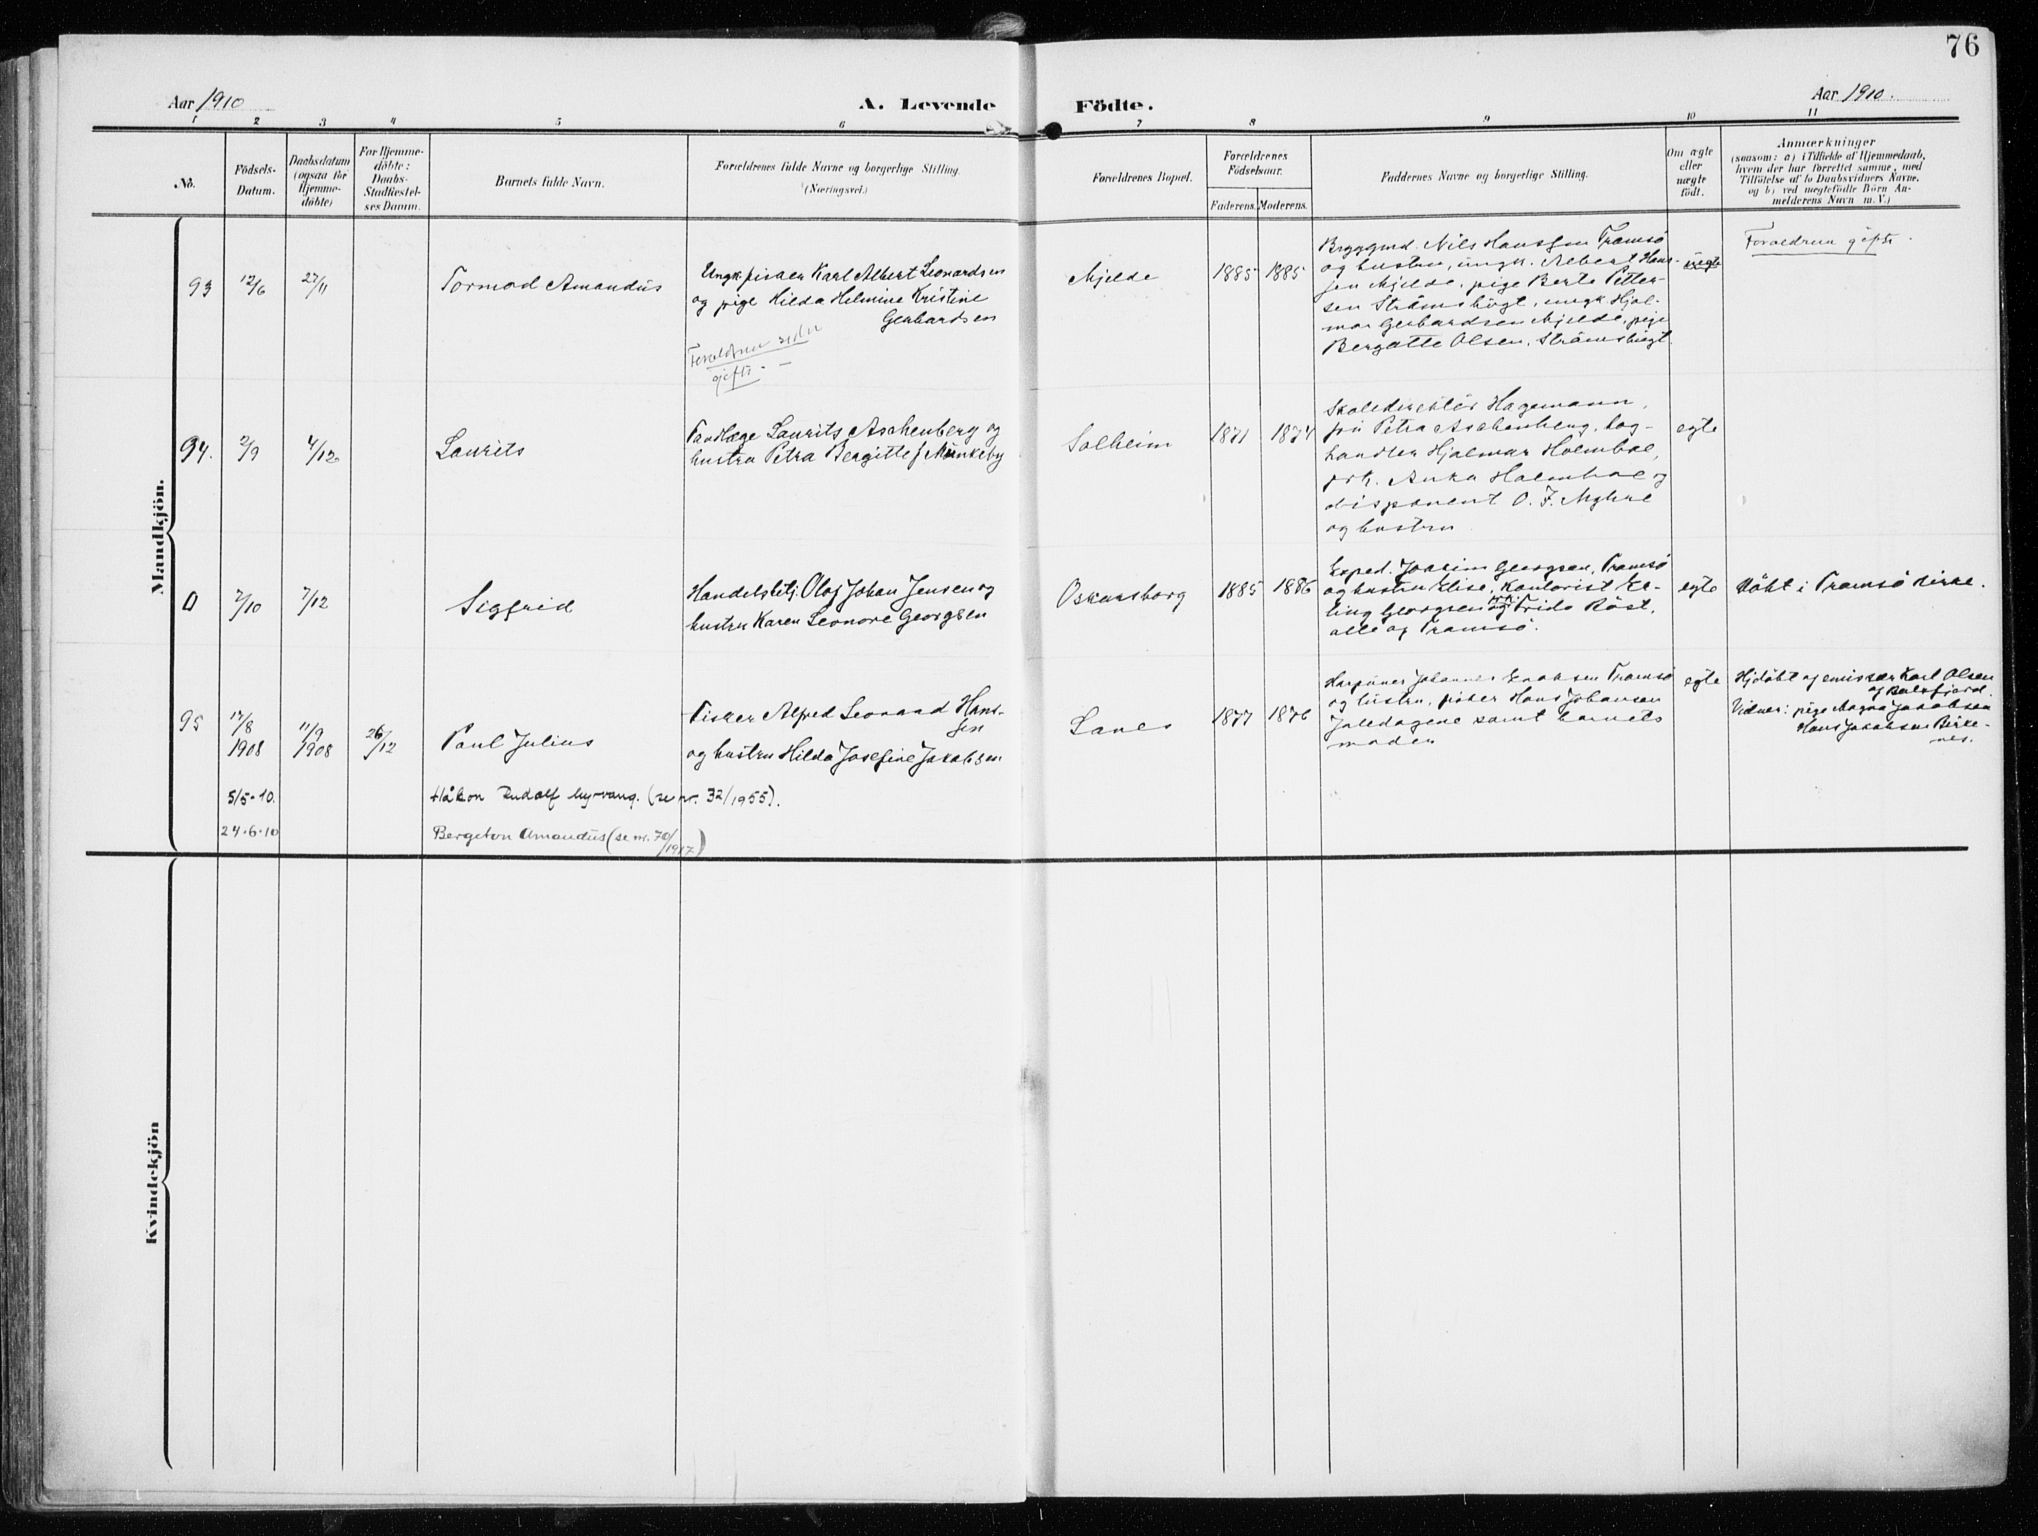 76
Aar 1910
A. Levende Födte.
Aar 1910.
1 2 3 4 5 6 7 8 9 10 11
No.
Födsels-
Datum.
Daabsdatum
(ogsaa for
Hjemme-
döbte)
For Hjemme-
döbte:
Daabs-
Stadfæstel-
ses Datum.
Barnets fulde Navn.
Forældrenes fulde Navne og borgerlige Stilling.
(Næringsvei.)
Forældrenes Bopæl.
Forældrenes
Födselsaar.
Faderens. Moderens.
Faddernes Navne og borgerlige Stilling.
Om ægte
eller
uægte
födt.
Anmærkninger
(saasom: a) i Tilfælde af Hjemmedaab,
hvem der har forrettet samme, med
Tilföielse af to Daabsvidners Navne,
og b) ved uægtefödte Börn An-
melderens Navn m. V.)
Mandkjön.
93
12/6
27/11
Tormod Amandus
Ungk. fisker Karl Albert Leonardsen
og pige Hilda Helmine Kristine
Gerhardsen
Forældrene siden
gifte. —
Mjelde
1885
1885
Bryggmd. Nils Hanssen Tromsö
og hustru, ungk. Albert Han-
sen Mjelde, pige Berte Petter-
sen Strömshögt, ungk Hjal-
mar Gerhardsen Mjelde, pige
Bergitte Olsen, Strömshögt.
uægte
Forældrene gifte.
94.
2/9
4/12
Laurits
Tandlæge Laurits Aschenberg og
hustru Petra Bergitte f Munkeby
Solheim
1871
1874
Skoledirektör Hagemann,
fru Petra Aschenberg, bog-
handler Hjalmar Holmboe,
frk. Anka Holmboe og
disponent O. F. Myhre
og hustru
egte
0
2/10
7/12
Sigfrid
Handelsbetj. Olaf Johan Jensen og
hustru Karen Leonore Georgsen
Oskarsborg
1885
1886
Exped. Joakim Georgsen, Tromsö
og hustru Elise, Kontorist Er-
ling Georgsen og frk. Frida Röst,
alle af Tromsö.
egte
Döbt i Tromsö kirke.
95
17/8
1908
11/9
1908
26/12
Paul Julius
Fisker Alfred Leonard Hans-
sen
og hustru Hilda Josefine Jakobsen
Lanes
1877
1876
Harpuner Johannes Tromsö
og hustru, fisker Hans Johansen
samt barnets
moder
egte
Hjdöbt af emissær Karl Olsen
af Balsfjord.
Vidner: pige Magna Jakobsen
Hans Jakobsen Birke-
nes.
5/5-10.
Håkon Rudolf Myrvang. (se nr. 32/1955).
24-6-10
Bergeton Amandus (se nr. 70/1917)
Kvindekjön